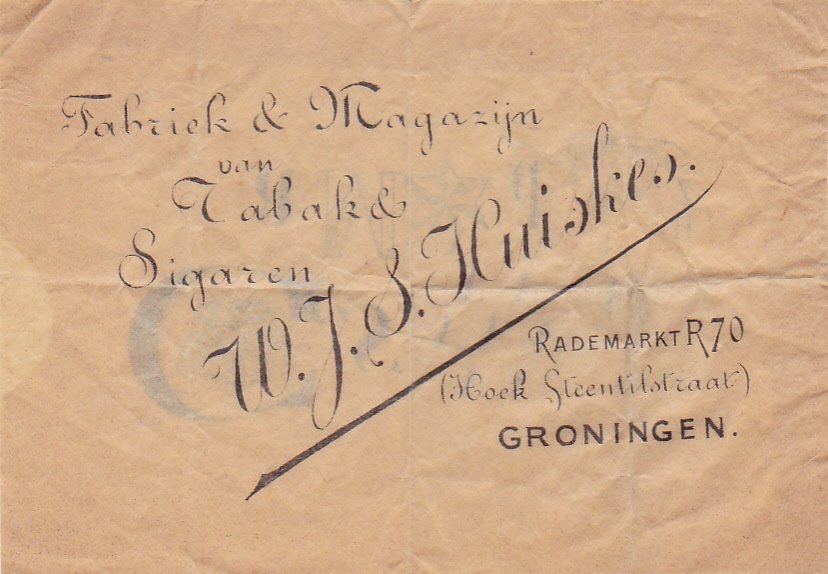 Fabriek & Magazijn
van
Tabak &
Sigaren
W. J. S. Huiskes.
RADEMARKT R 70
(Hoek Steentilstraat)
GRONINGEN.